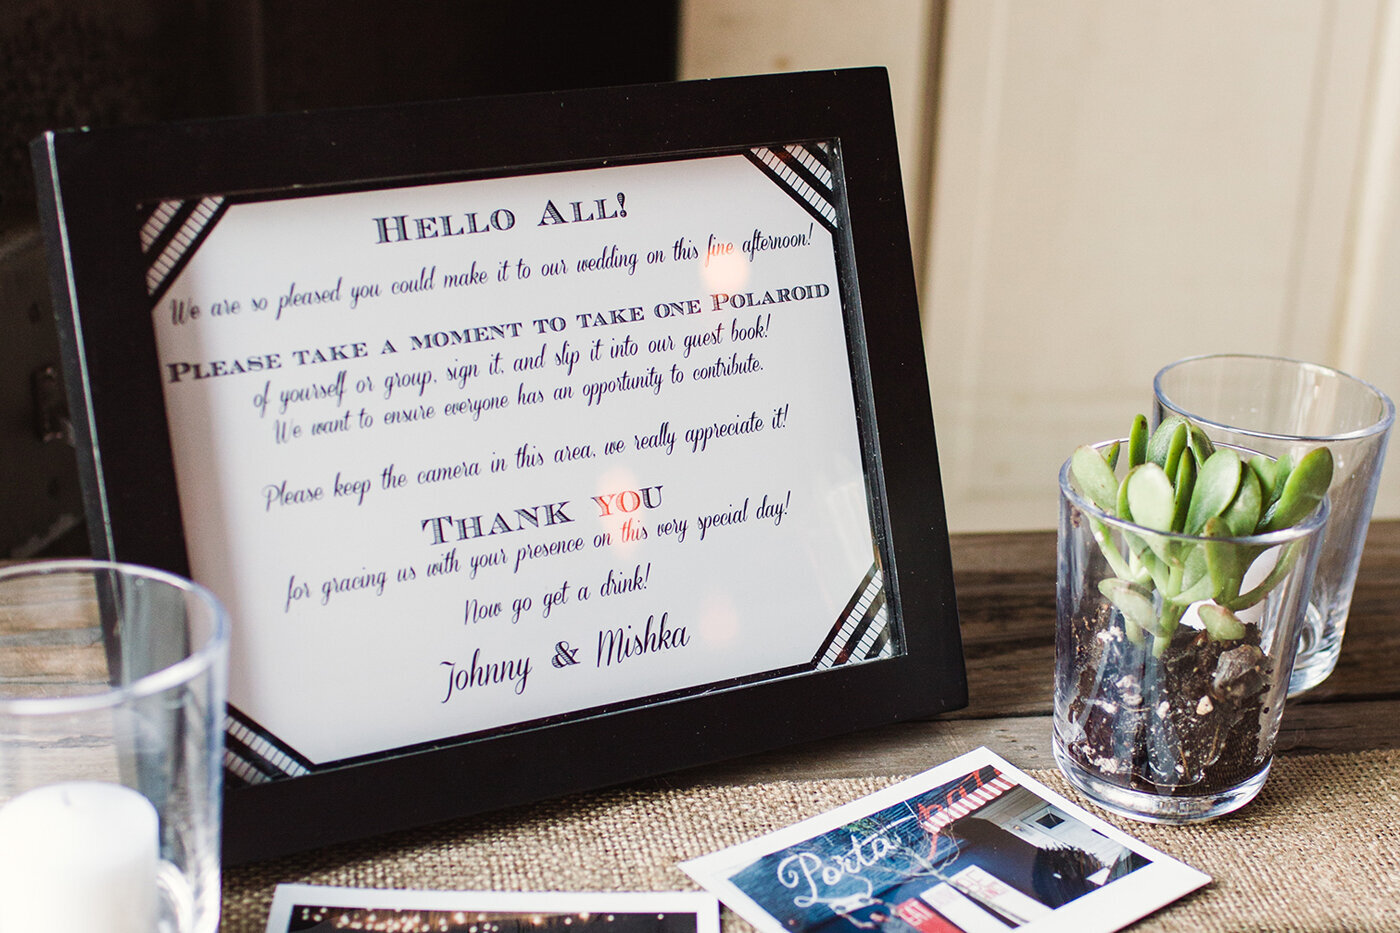 Hello All!
We are so pleased you could make it to our wedding on this fine afternoon!
Please take a moment to take one Polaroid
of yourself or group, sign it, and slip it into our guest book!
We want to ensure everyone has an opportunity to contribute.
Please keep the camera in this area, we really appreciate it!
Thank you
for gracing us with your presence on this very special day!
Now go get a drink!
Johnny & Mishka
Porta